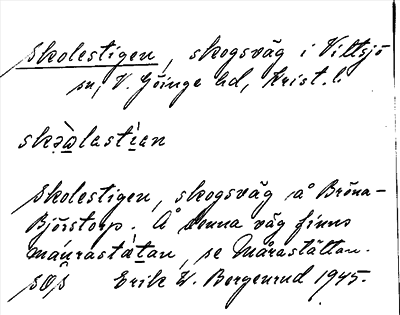 Skolestigen, skogsväg i Vittsjö
sn, V. Göinge hd, Krist. l.
skǝ̀ꭥlastían
Skolestigen, skogsväg å Bröna-
Björstorp. Å denna väg finns
måurastátan, se Måraståttan.
SOS Erik W. Bergenrud 1945.